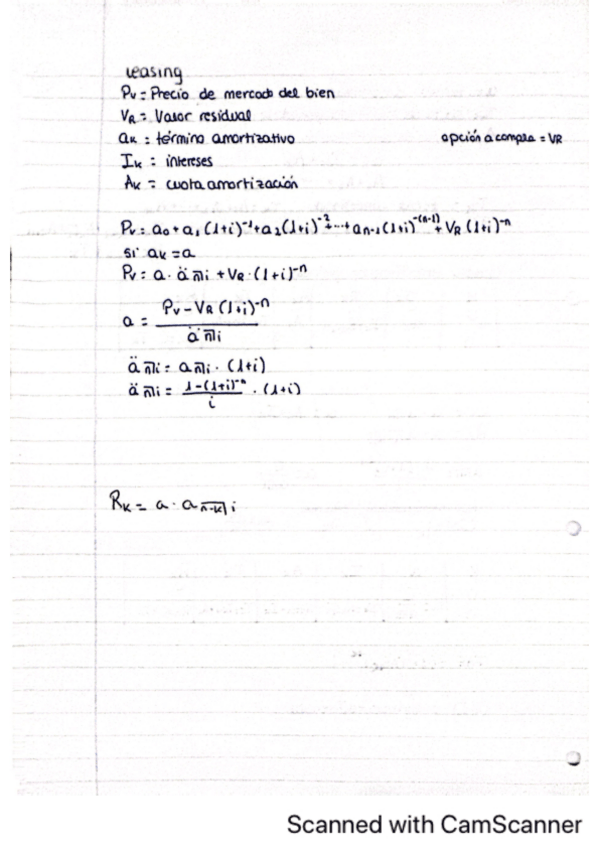 leasing
Pv = Precio de mercado del bien
VR = Valor residual
aK = término amortizativo opción a compra = VR
IK = intereses
AK = cuota amortización
Pv = a₀ + a₁ (1+i)⁻¹ + a₂ (1+i)⁻² + ... + aₙ₋₁ (1+i)⁻⁽ⁿ⁻¹⁾ + VR (1+i)⁻ⁿ
si aK = a
Pv = a · ä n̅| i + VR · (1+i)⁻ⁿ
a = (Pv - VR (1+i)⁻ⁿ) / ä n̅| i
ä n̅| i = a n̅| i · (1+i)
ä n̅| i = (1 - (1+i)⁻ⁿ) / i · (1+i)
RK = a · a n-k| i
Scanned with CamScanner